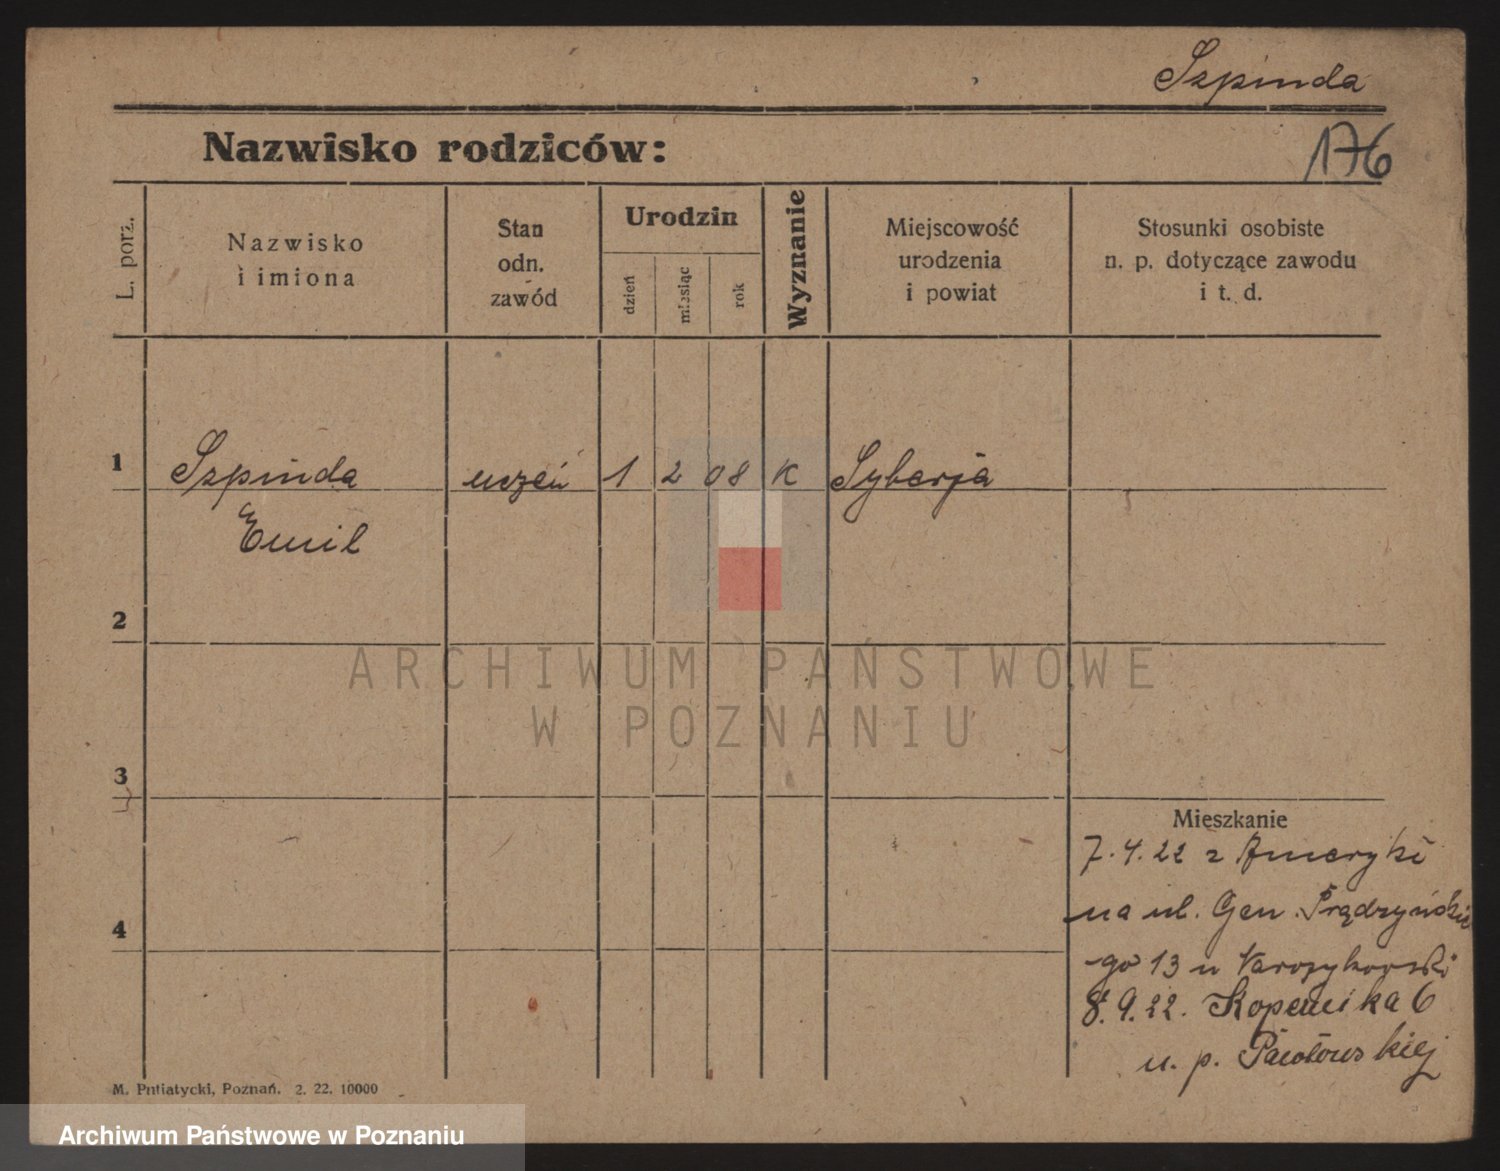 Szpinda
Nazwisko rodziców:
176
L. porz.
Nazwisko
i imiona
Stan
odn.
zawód
Urodzin
dzień
miesiąc
rok
Wyznanie
Miejscowość
urodzenia
i powiat
Stosunki osobiste
n. p. dotyczące zawodu
i t. d.
1 Szpinda uczeń 1 2 08 K Syberja
Emil
2
3
4
Mieszkanie
7.4.22 z Ameryki
na ul. Gen. Prądzyńskie
go 13 u
8.9.22. Kopernika 6
u. p.
M. Putiatycki, Poznań. 2. 22. 10000
ARCHIWUM PAŃSTWOWE
W POZNANIU
Archiwum Państwowe w Poznaniu